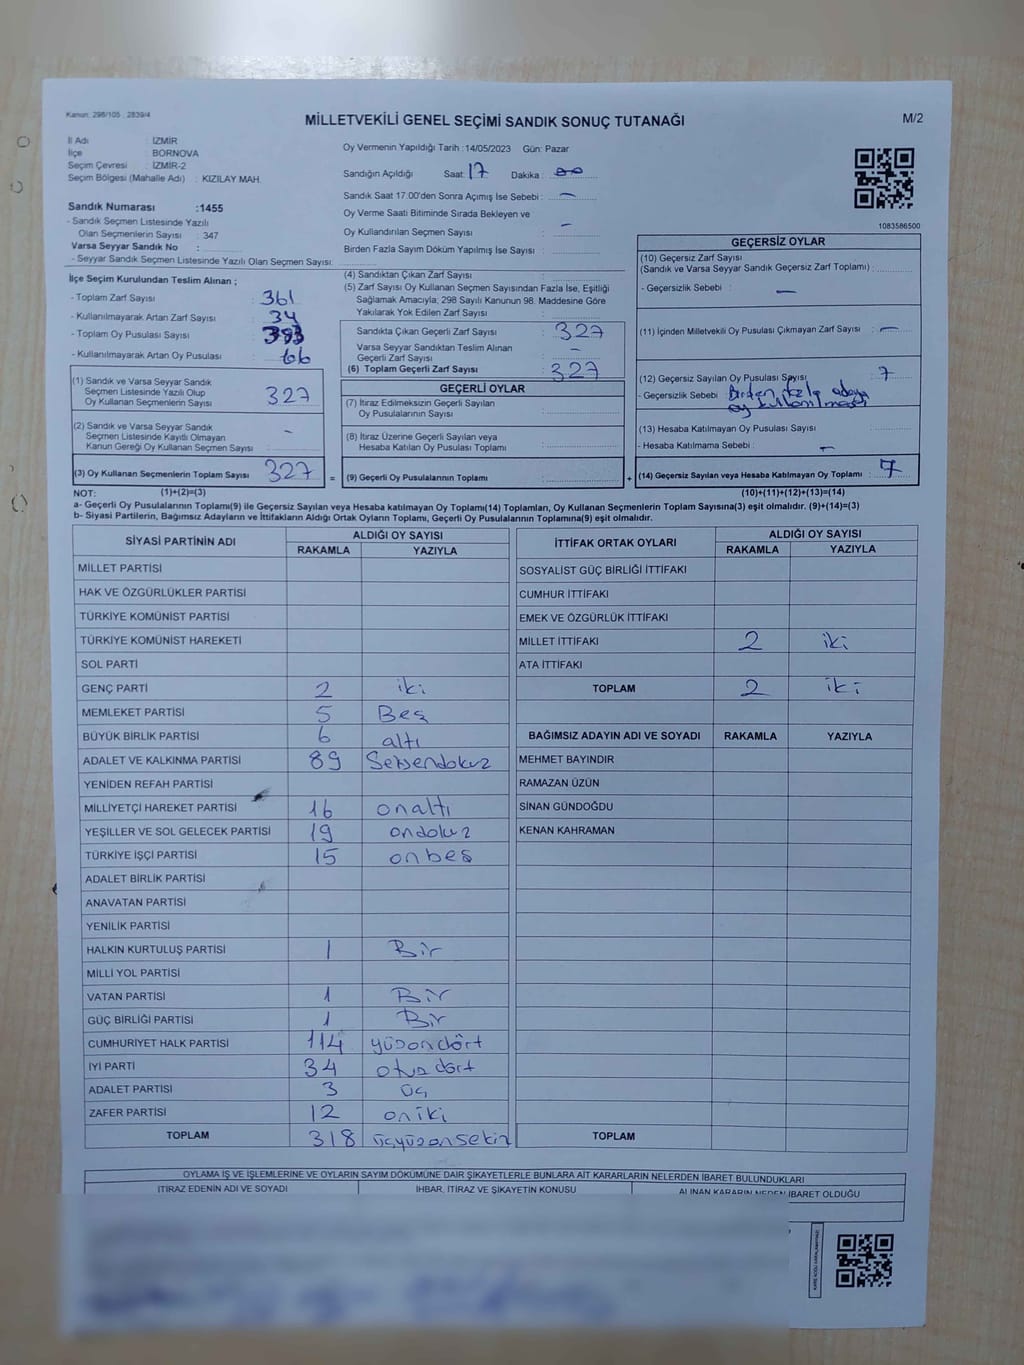 Kanun: 298/105 , 2839/4
MİLLETVEKİLİ GENEL SEÇİMİ SANDIK SONUÇ TUTANAĞI
M/2
İl Adı : İZMİR
İlçe : BORNOVA
Seçim Çevresi : İZMİR-2
Seçim Bölgesi (Mahalle Adı) : KIZILAY MAH.
Sandık Numarası :1455
- Sandık Seçmen Listesinde Yazılı
Olan Seçmenlerin Sayısı : 347
Varsa Seyyar Sandık No :
- Seyyar Sandık Seçmen Listesinde Yazılı Olan Seçmen Sayısı:
Oy Vermenin Yapıldığı Tarih :14/05/2023 Gün: Pazar
Sandığın Açıldığı Saat: 17 Dakika : 00
Sandık Saat 17.00'den Sonra Açımış İse Sebebi : —
Oy Verme Saati Bitiminde Sırada Bekleyen ve
Oy Kullandırılan Seçmen Sayısı : —
Birden Fazla Sayım Döküm Yapılmış İse Sayısı :
1083586500
İlçe Seçim Kurulundan Teslim Alınan ;
- Toplam Zarf Sayısı : 361
- Kullanılmayarak Artan Zarf Sayısı : 34
- Toplam Oy Pusulası Sayısı : 393
- Kullanılmayarak Artan Oy Pusulası : 66
(1) Sandık ve Varsa Seyyar Sandık
Seçmen Listesinde Yazılı Olup
Oy Kullanan Seçmenlerin Sayısı : 327
(2) Sandık ve Varsa Seyyar Sandık
Seçmen Listesinde Kayıtlı Olmayan
Kanun Gereği Oy Kullanan Seçmen Sayısı : -
(3) Oy Kullanan Seçmenlerin Toplam Sayısı : 327
(4) Sandıktan Çıkan Zarf Sayısı :
(5) Zarf Sayısı Oy Kullanan Seçmen Sayısından Fazla İse, Eşitliği
Sağlamak Amacıyla, 298 Sayılı Kanunun 98. Maddesine Göre
Yakılarak Yok Edilen Zarf Sayısı :
Sandıkta Çıkan Geçerli Zarf Sayısı : 327
Varsa Seyyar Sandıktan Teslim Alınan
Geçerli Zarf Sayısı : -
(6) Toplam Geçerli Zarf Sayısı : 327
GEÇERLİ OYLAR
(7) İtiraz Edilmeksizin Geçerli Sayılan
Oy Pusulalarının Sayısı :
(8) İtiraz Üzerine Geçerli Sayılan veya
Hesaba Katılan Oy Pusulası Toplamı :
= (9) Geçerli Oy Pusulalarının Toplamı : +
GEÇERSİZ OYLAR
(10) Geçersiz Zarf Sayısı
(Sandık ve Varsa Seyyar Sandık Geçersiz Zarf Toplamı) :
- Geçersizlik Sebebi : —
(11) İçinden Milletvekili Oy Pusulası Çıkmayan Zarf Sayısı : —
(12) Geçersiz Sayılan Oy Pusulası Sayısı : 7
- Geçersizlik Sebebi : Birden fazla adaya
oy kullanılması
(13) Hesaba Katılmayan Oy Pusulası Sayısı :
- Hesaba Katılmama Sebebi : —
(14) Geçersiz Sayılan veya Hesaba Katılmayan Oy Toplamı : 7
NOT: (1)+(2)=(3) (10)+(11)+(12)+(13)=(14)
a- Geçerli Oy Pusulalarının Toplamı(9) ile Geçersiz Sayılan veya Hesaba katılmayan Oy Toplamı(14) Toplamları, Oy Kullanan Seçmenlerin Toplam Sayısına(3) eşit olmalıdır. (9)+(14)=(3)
b- Siyasi Partilerin, Bağımsız Adayların ve İttifakların Aldığı Ortak Oyların Toplamı, Geçerli Oy Pusulalarının Toplamına(9) eşit olmalıdır.
SİYASİ PARTİNİN ADI ALDIĞI OY SAYISI
RAKAMLA YAZIYLA
MİLLET PARTİSİ
HAK VE ÖZGÜRLÜKLER PARTİSİ
TÜRKİYE KOMÜNİST PARTİSİ
TÜRKİYE KOMÜNİST HAREKETİ
SOL PARTİ
GENÇ PARTİ 2 iki
MEMLEKET PARTİSİ 5 Beş
BÜYÜK BİRLİK PARTİSİ 6 altı
ADALET VE KALKINMA PARTİSİ 89 Seksendokuz
YENİDEN REFAH PARTİSİ
MİLLİYETÇİ HAREKET PARTİSİ 16 onaltı
YEŞİLLER VE SOL GELECEK PARTİSİ 19 ondokuz
TÜRKİYE İŞÇİ PARTİSİ 15 onbeş
ADALET BİRLİK PARTİSİ
ANAVATAN PARTİSİ
YENİLİK PARTİSİ
HALKIN KURTULUŞ PARTİSİ 1 Bir
MİLLİ YOL PARTİSİ
VATAN PARTİSİ 1 Bir
GÜÇ BİRLİĞİ PARTİSİ 1 Bir
CUMHURİYET HALK PARTİSİ 114 yüzondört
İYİ PARTİ 34 otuzdört
ADALET PARTİSİ 3 üç
ZAFER PARTİSİ 12 oniki
TOPLAM 318 üçyüzonsekiz
İTTİFAK ORTAK OYLARI ALDIĞI OY SAYISI
RAKAMLA YAZIYLA
SOSYALİST GÜÇ BİRLİĞİ İTTİFAKI
CUMHUR İTTİFAKI
EMEK VE ÖZGÜRLÜK İTTİFAKI
MİLLET İTTİFAKI 2 iki
ATA İTTİFAKI
TOPLAM 2 iki
BAĞIMSIZ ADAYIN ADI VE SOYADI RAKAMLA YAZIYLA
MEHMET BAYINDIR
RAMAZAN ÜZÜN
SİNAN GÜNDOĞDU
KENAN KAHRAMAN
TOPLAM
OYLAMA İŞ VE İŞLEMLERİNE VE OYLARIN SAYIM DÖKÜMÜNE DAİR ŞİKAYETLERLE BUNLARA AİT KARARLARIN NELERDEN İBARET BULUNDUKLARI
İTİRAZ EDENİN ADI VE SOYADI İHBAR, İTİRAZ VE ŞİKAYETİN KONUSU ALINAN KARARIN NEDEN İBARET OLDUĞU